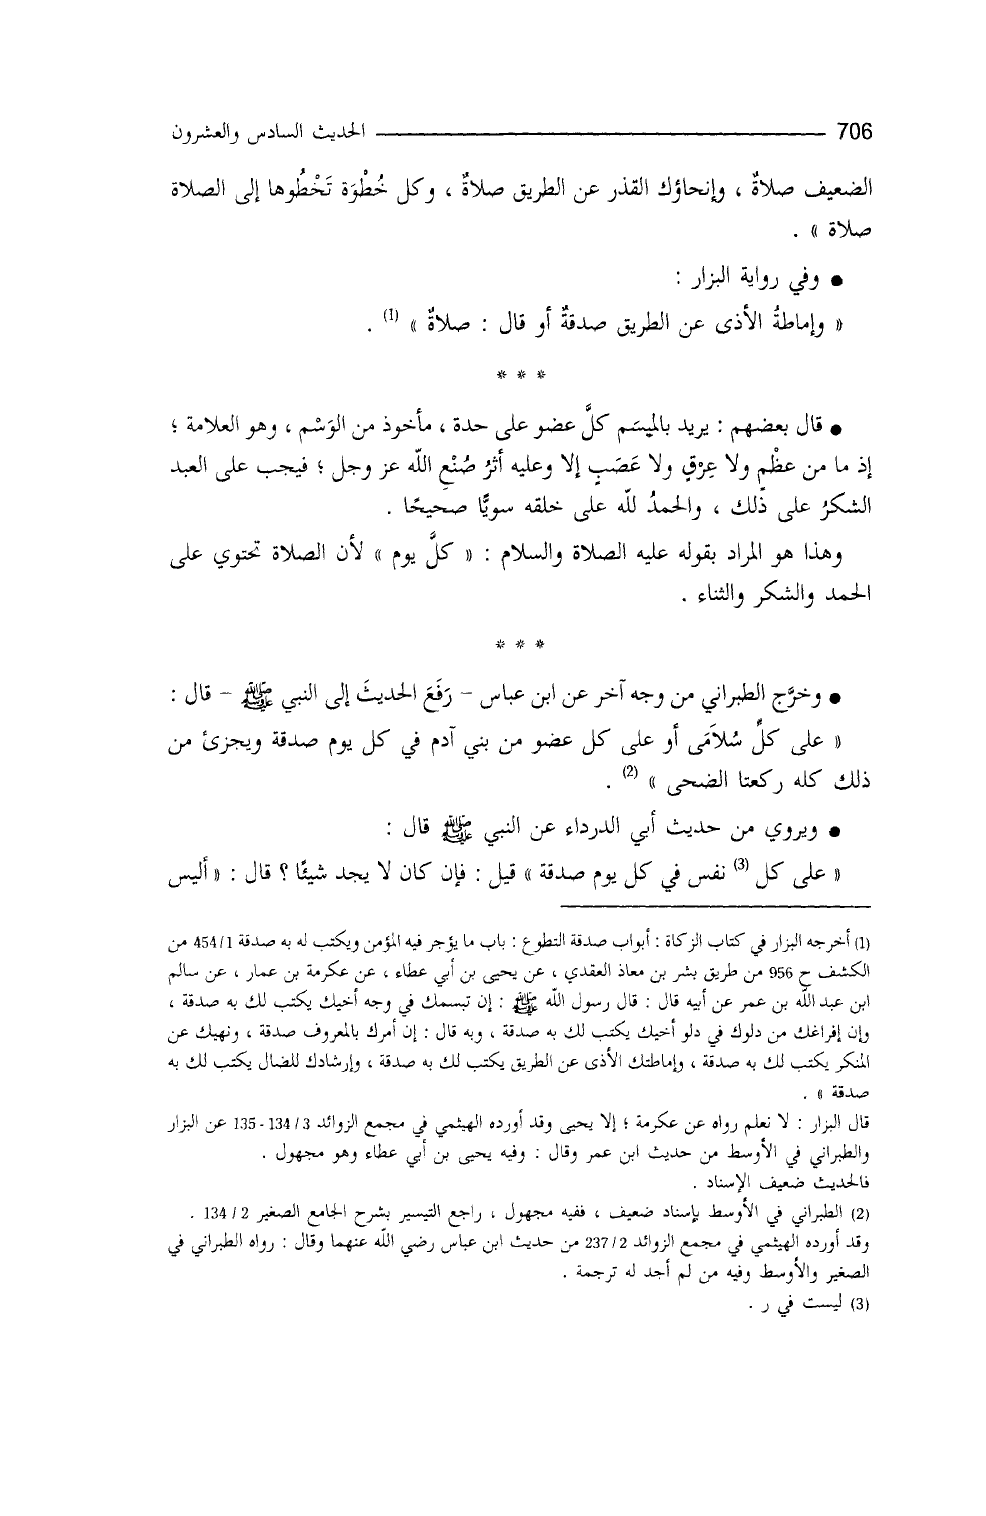 706 ـــــــــــــــــــــ الحديث السادس والعشرون
الضعيف صلاةٌ ، وإنحاؤك القذر عن الطريق صلاةٌ ، وكل خُطْوَة تَخْطُوها إلى الصلاة
صلاة » .
● وفي رواية البزار :
« وإماطةُ الأذى عن الطريق صدقةٌ أو قال : صلاةٌ » (1) .
* * *
● قال بعضهم : يريد بالمِيسَم كلَّ عضو على حدة ، مأخوذ من الوَسْم ، وهو العلامة ؛
إذ ما من عظْمٍ ولا عِرْقٍ ولا عَصَبٍ إلا وعليه أثرُ صُنْعِ اللّه عز وجل ؛ فيجب على العبد
الشكرُ على ذلك ، والحمدُ للّه على خلقه سويًّا صحيحًا .
وهذا هو المراد بقوله عليه الصلاة والسلام : « كلَّ يوم » لأن الصلاة تحتوي على
الحمد والشكر والثناء .
* * *
● وخرَّج الطبراني من وجه آخر عن ابن عباس - رَفَعَ الحديثَ إلى النبي ﷺ - قال :
« على كلِّ سُلاَمَى أو على كل عضو من بني آدم في كل يوم صدقة ويجزئ من
ذلك كله ركعتا الضحى » (2) .
● ويروي من حديث أبي الدرداء عن النبي ﷺ قال :
« على كل (3) نفس في كل يوم صدقة » قيل : فإن كان لا يجد شيئًا ؟ قال : « أليس
(1) أخرجه البزار في كتاب الزكاة : أبواب صدقة التطوع : باب ما يؤجر فيه المؤمن ويكتب له به صدقة 454/1 من
الكشف ح 956 من طريق بشر بن معاذ العقدي ، عن يحيى بن أبي عطاء ، عن عكرمة بن عمار ، عن سالم
ابن عبد اللّه بن عمر عن أبيه قال : قال رسول اللّه ﷺ : إن تبسمك في وجه أخيك يكتب لك به صدقة ،
وإن إفراغك من دلوك في دلو أخيك يكتب لك به صدقة ، وبه قال : إن أمرك بالمعروف صدقة ، ونهيك عن
المنكر يكتب لك به صدقة ، وإماطتك الأذى عن الطريق يكتب لك به صدقة ، وإرشادك للضال يكتب لك به
صدقة » .
قال البزار : لا نعلم رواه عن عكرمة ؛ إلا يحيى وقد أورده الهيثمي في مجمع الزوائد 134/3 - 135 عن البزار
والطبراني في الأوسط من حديث ابن عمر وقال : وفيه يحيى بن أبي عطاء وهو مجهول .
فالحديث ضعيف الإسناد .
(2) الطبراني في الأوسط بإسناد ضعيف ، ففيه مجهول ، راجع التيسير بشرح الجامع الصغير 134/2 .
وقد أورده الهيثمي في مجمع الزوائد 237/2 من حديث ابن عباس رضي اللّه عنهما وقال : رواه الطبراني في
الصغير والأوسط وفيه من لم أجد له ترجمة .
(3) ليست في ر .